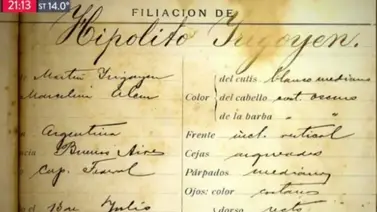 21:13 ST 14.0°
FILIACION DE
Hipolito Irigoyen.
Martin Irigoyen
Marcelina Alem
Argentina
cia Buenos Aires
Cap. Federal
el 12 de Julio
Color
del cutis blanco mediano
del cabello cast. oscuro
de la barba " "
Frente incl. vertical
Cejas arqueadas
Párpados medianos
Ojos: color castaños
dorso recto